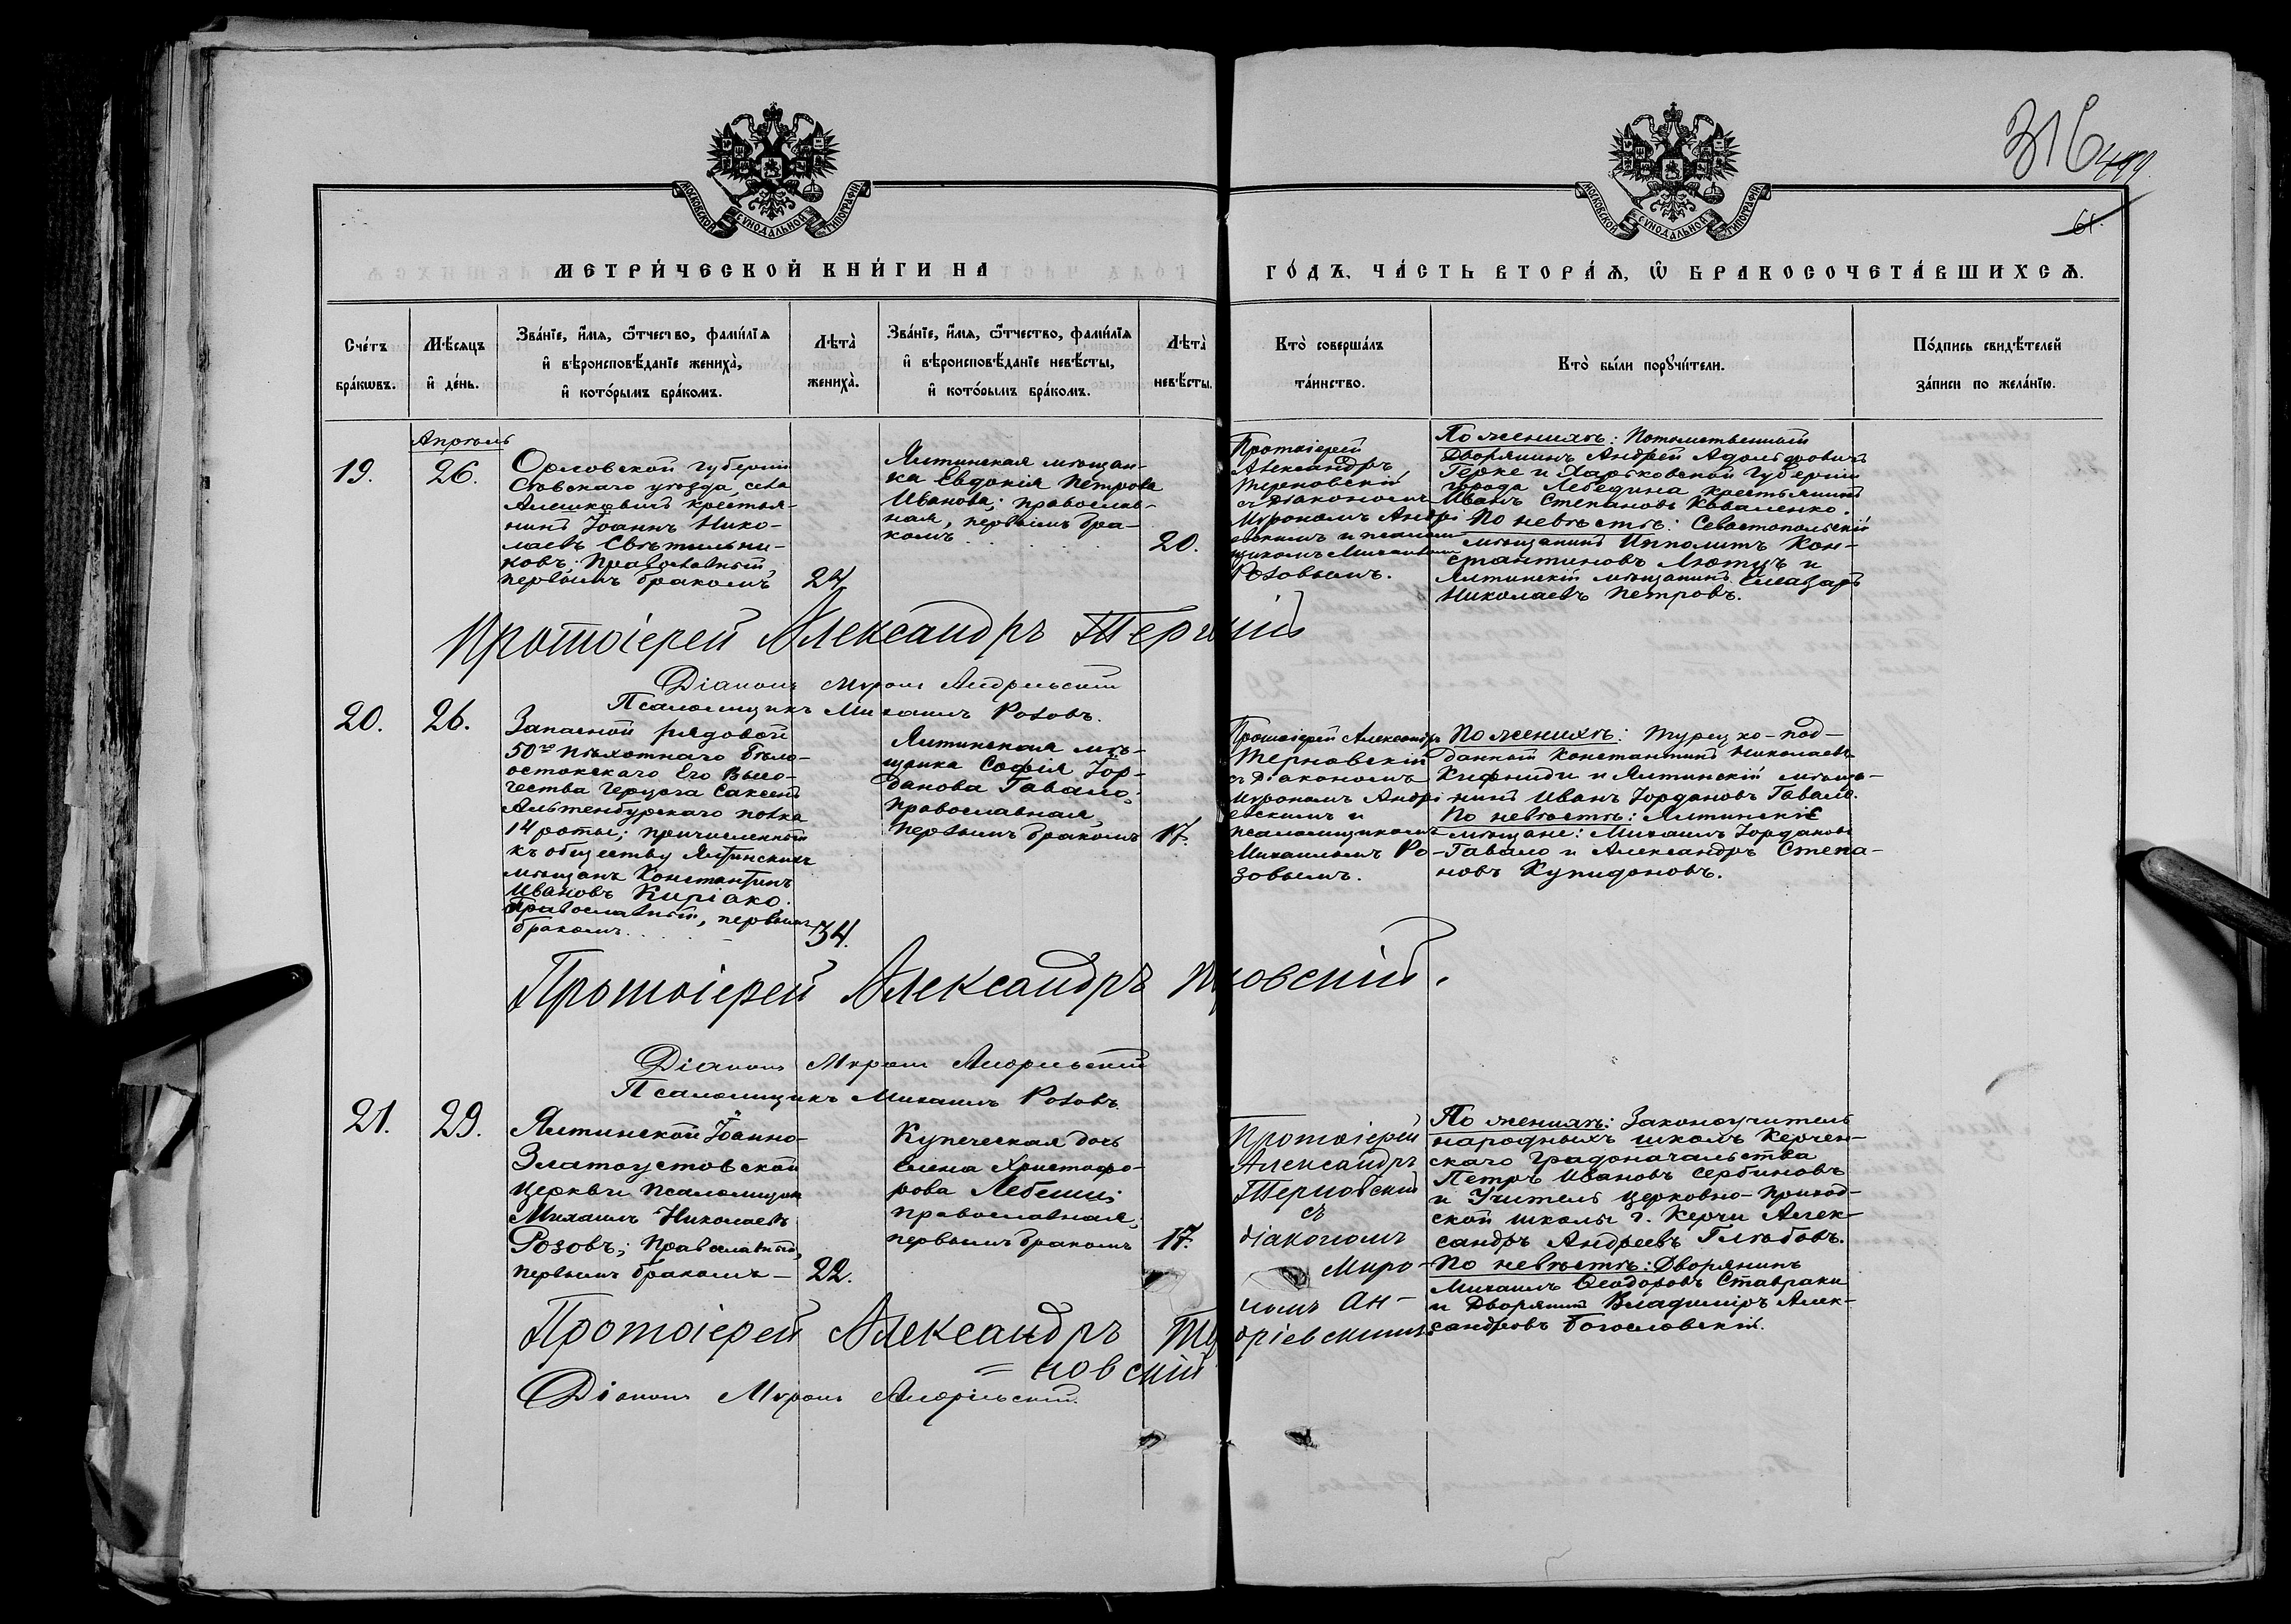 316
499
61.
МОСКОВСКОЙ СУНОДАЛЬНОЙ ТИПОГРАФІИ
МОСКОВСКОЙ СУНОДАЛЬНОЙ ТИПОГРАФІИ
МЕТРИ́ЧЕСКОЙ КНИ́ГИ НА
ГО́ДЪ, ЧА́СТЬ ВТОРА́Ѧ, Ѽ БРАКОСОЧЕТА́ВШИХСѦ.
Сче́тъ
бра́кѡвъ.
Мѣ́сяцъ
и҆ де́нь.
Зва́нїе, и҆́мѧ, ѻ҆́тчество, фами́лїѧ
и҆ вѣроисповѣ́данїе жениха̀,
и҆ кото́рымъ бра́комъ.
Лѣта̀
жениха̀.
Зва́нїе, и҆́мѧ, ѻ҆́тчество, фами́лїѧ
и҆ вѣроисповѣ́данїе невѣ́сты,
и҆ кото́рымъ бра́комъ.
Лѣта̀
невѣ́сты.
Кто̀ соверша́лъ
та́инство.
Кто̀ бы́ли порꙋчи́тели.
По́дпись свидѣ́телей
за́писи по жела́нїю.
19.
Апрѣль
26.
Орловской губерніи
Сѣвскаго уѣзда, села
Алешковичъ крестья-
нинъ Іоаннъ Нико-
лаевъ Свѣтильни-
ковъ; Православный,
первымъ бракомъ
24
Ялтинская мѣщан-
ка Евдокія Петрова
Иванова; православ-
ная, первымъ бра-
комъ
20.
Протоіерей
Александръ
Терновскій
съ Діакономъ
Мурономъ Андрі
евскимъ и псалом
щикомъ Михаиломъ
Розовымъ.
По женихѣ: Потомственный
Дворянинъ Андрей Адольфовичъ
Герке и Харьковской Губерніи
города Лебедина крестьянинъ
Иванъ Степановъ Коваленко.
По невѣстѣ: Севастопольскій
мѣщанинъ Ипполитъ Кон-
стантиновъ Лютцъ и
Ялтинскій мѣщанинъ Елеазаръ
Николаевъ Петровъ.
Протоіерей Александръ Тер
Діаконъ Муронъ Андріевскій
Псаломщикъ Михаилъ Розовъ.
20.
26.
Запасной рядовой
50го пѣхотнаго Бѣло-
стокскаго Его Высо-
чества Герцога Саксенъ
Альтенбургскаго полка
14 роты; причисленный
къ обществу Ялтинскихъ
мѣщанъ Константинъ
Ивановъ Киріако.
Православный, первымъ
бракомъ.
34.
Ялтинская мѣ-
щанка Софія Іор-
данова Гавало;
православная,
первымъ бракомъ
17.
Протоіерей Александръ
Терновскій
съ Діакономъ
Мурономъ Андрі
евскимъ и
псаломщикомъ
Михаиломъ Ро-
зовымъ.
По женихѣ: Турецко-под-
данный Константинъ Николаевъ
Кифниди и Ялтинскій мѣща-
нинъ Иванъ Іордановъ Гавало.
По невѣстѣ: Ялтинскіе
мѣщане: Михаилъ Іордановъ
Гавало и Александръ Степа-
новъ Купидоновъ.
Протоіерей Александръ Т ровскій.
Діаконъ Муронъ Андріевскій
Псаломщикъ Михаилъ Розовъ.
21.
29.
Ялтинской Іоанно-
Златоустовской
церкви псаломщикъ
Михаилъ Николаевъ
Розовъ; Православный,
первымъ бракомъ
22.
Купеческая дочь
Елена Христофо-
рова Лебеши;
православная,
первымъ бракомъ
17.
Протоіерей
Александръ
Терновскій
съ
діакономъ
Муро-
номъ Ан-
дріевскимъ
По женихѣ: Законоучитель
народныхъ школъ Керчен-
скаго градоначальства
Петръ Ивановъ Сербиновъ
и Учитель церковно-приход-
ской школы г. Керчи Алек-
сандръ Андреевъ Глѣбовъ.
По невѣстѣ: Дворянинъ
Михаилъ Ѳеодоровъ Ставраки
и Дворянинъ Владиміръ Алек-
сандровъ Богословскій.
Протоіерей Александръ Те
= новскій
Діаконъ Муронъ Андріевскій.